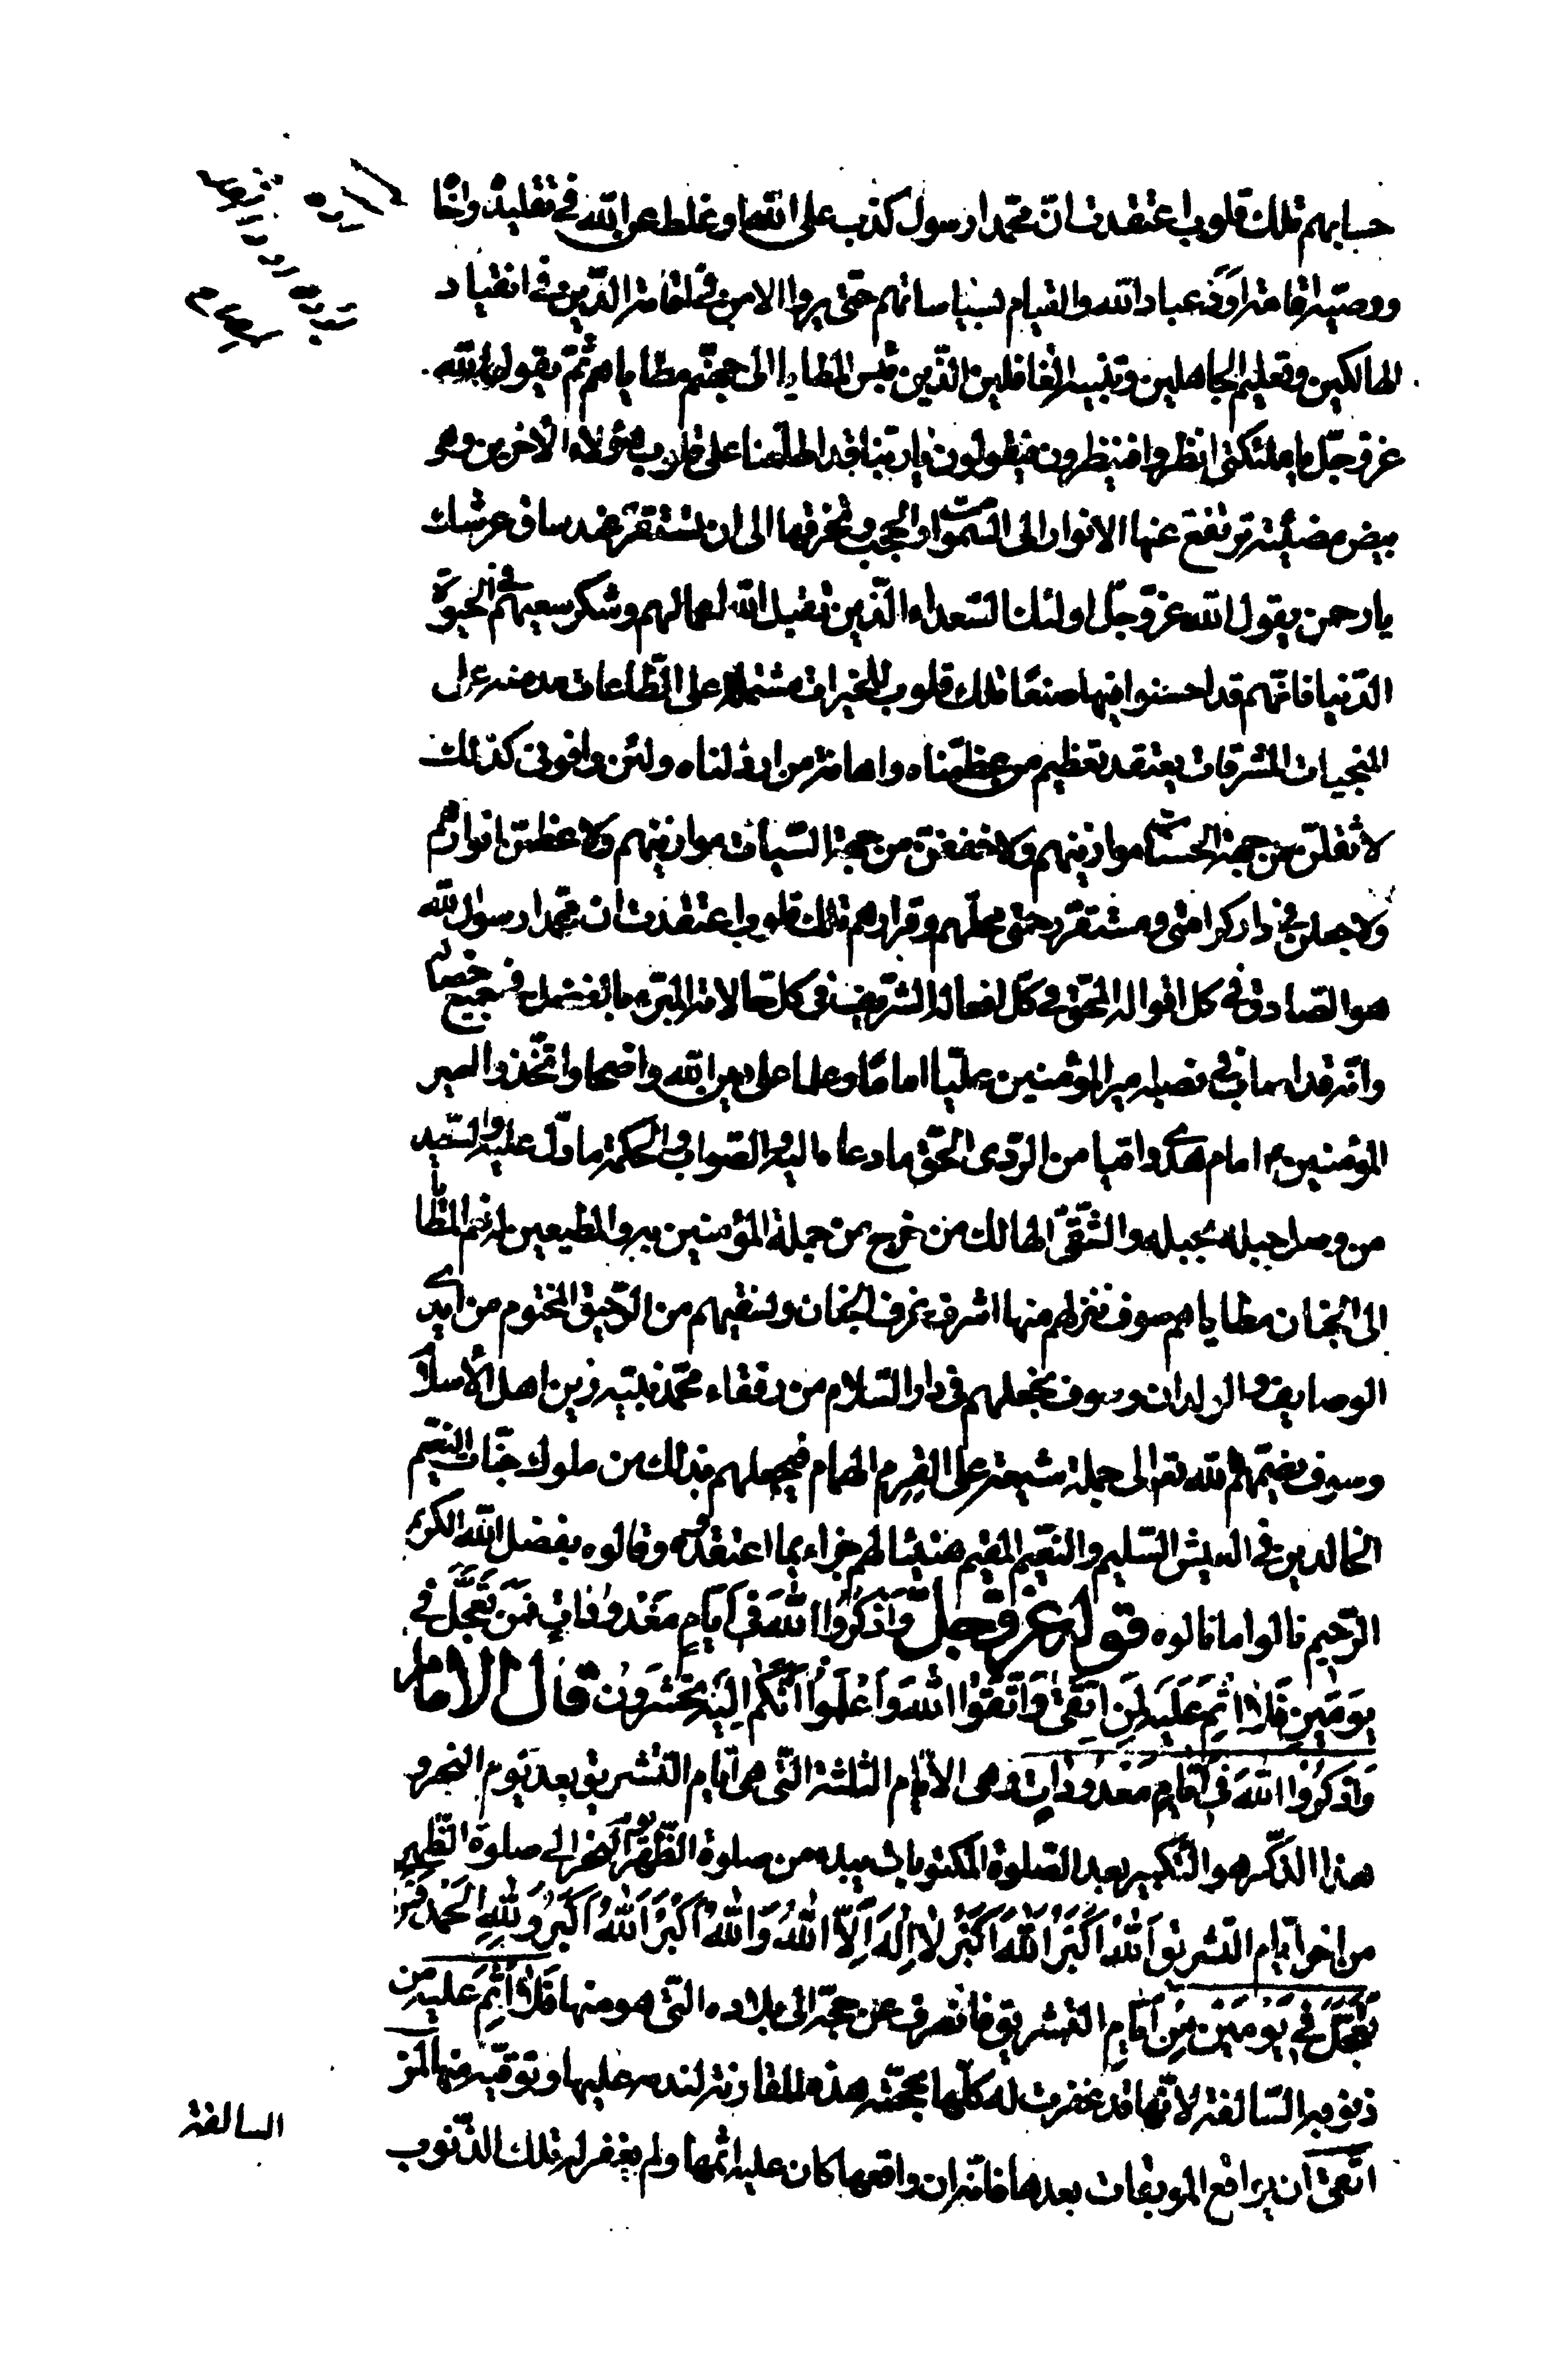 حسابهم تلك قلوب اعتقدت ان محمدا رسول كذب على الله وغلط عن الله في تقليده واخا
ووصيه اقامة اود عباد الله والقيام بسياساتهم حتى يروا الامن في اقامة الدين في انقياد
الهالكين وتعليم الجاهلين وتنبيه الغافلين الذين بئس المطايا الى جهنم مطاياهم ثم يقول الله
عز وجل يا ملئكتي انظروا فينظرون فيقولون يا ربنا قد اطلعنا على قلوب هؤلاء الاخرين وهي
بيض مضيئة ترتفع عنها الانوار الى السموات والحجب وتخرقها الى ان تستقر عند ساق عرشك
يا رحمن يقول الله عز وجل اولئك السعداء الذين تقبل الله اعمالهم وشكر سعيهم في الحيوة
الدنيا فانهم قد احسنوا فيها صنعا تلك قلوب للخيرات مشتملة على الطاعات مدمنة على
المنجيات المشرفات يعتقد تعظيم من عظمناه واهانة من ارذلناه ولئن وافوني كذلك
لاثقلن من جهة الحسنات موازينهم ولاخففن من جهة السيئات موازينهم ولاعظمن انوارهم
ولاجعلن في دار كرامتي ومستقر رحمتي محلهم وقرارهم تلك قلوب اعتقدت ان محمدا رسول الله
هو الصادق في كل اقواله المحق في كل افعاله الشريف في كل حالاته المبرز بالفضل في جميع خصاله
وانه قد اصاب في نصبه امير المؤمنين عليا اماما وعلما على دين الله واضحا واتخذوا امير
المؤمنين ع امام هدى واقيا من الردى الحق ما دعا اليه والصواب والحكمة ما دل عليه والسعيد
من وصل حبله بحبله والشقي الهالك من خرج من جملة المؤمنين به والمطيعين له نعم المطايا
الى الجنان مطاياهم سوف ننزلهم منها اشرف غرف الجنان ونسقيهم من الرحيق المختوم من ايدي
الوصايف والولدان وسوف نجعلهم في دار السلام من رفقاء محمد نبيه زين اهل الاسلام
وسوف يضمهم الله تعالى الى جملة شيعة علي القرم الهمام فيجعلهم بذلك من ملوك جنات النعيم
الخالدين في العيش السليم والنعيم المقيم هنيئا لهم جزاء بما اعتقدوه وقالوه بفضل الله الكريم
الرحيم نالوا ما نالوه قوله عز وجل وَاذْكُرُوا اللهَ في اَيّامٍ مَعْدُوداتٍ فَمَنْ تَعَجَّلَ في
يَوْمَيْنِ فَلا اِثْمَ عَلَيْهِ لِمَنِ اتَّقى وَاتَّقُوا اللهَ وَاعْلَمُوا اَنَّكُمْ اِلَيْهِ تُحْشَرُونَ قال الامام
وَاذْكُرُوا اللهَ في اَيّامٍ مَعْدُوداتٍ وهي الايام الثلثة التي هي ايام التشريق بعد يوم النحر و
هذا الذكر هو التكبير بعد الصلوة المكتوبات يبدء من صلوة الظهر يوم النحر الى صلوة الظهر
من اخر ايام التشريق اَللهُ اَكْبَرُ اَللهُ اَكْبَرُ لا اِلهَ اِلاَّ اللهُ وَاللهُ اَكْبَرُ اَللهُ اَكْبَرُ وَلِلّهِ الْحَمْدُ فَمَنْ
تَعَجَّلَ في يَوْمَيْنِ مِنْ اَيّامِ التشريق فانصرف عن حجه الى بلاده التي هو منها فَلا اِثْمَ عَلَيْهِ من
ذنوبه السالفة لانها قد غفرت له كلها بحجته هذه المقارنة لندمه عليها وتوقيه منها لمن
اتقى ان يواقع الموبقات بعدها فانه ان واقعها كان عليه اثمها ولم يغفر له تلك الذنوب
السالفة